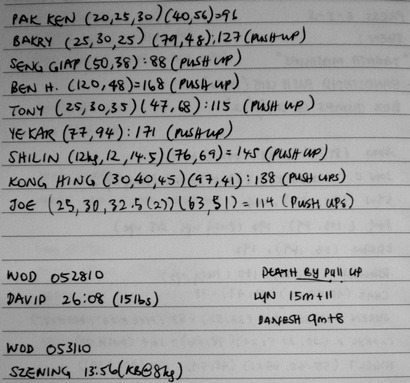 PAK KEN (20,25,30)(40,56)=96
BAKRY (25,30,25) (79,48):127 (PUSH UP)
SENG GIAP (50,38):88 (PUSH UP)
BEN H. (120,48)=168 (PUSH UP)
TONY (25,30,35)(47,68):115 (PUSH UP)
YE KAR (77,94):171 (PUSH UP)
SHILIN (12kg,12,14.5)(76,69)=145 (PUSH UP)
KONG HING (30,40,45)(97,41):138 (PUSH UPS)
JOE (25,30,32.5(2))(63,51)=114 (PUSH UPS)
WOD 052810
DAVID 26:08 (15lbs)
DEATH BY PULL UP
LYN 15m+11
DANESH 9m+8
WOD 053110
SZENING 13:56 (KB@8kg)